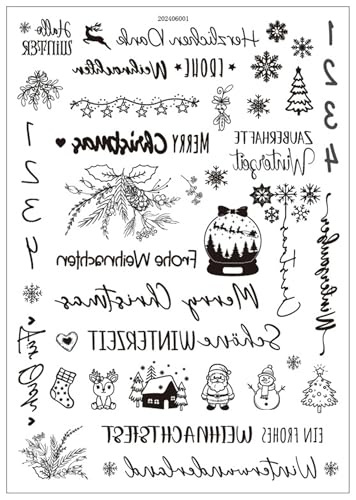 202406001
Hallo
WINTER
Herzlichen Dank
FROHE Weihnachten
1
2
3
4
1
2
3
4
MERRY Christmas
ZAUBERHAFTE
Winterzeit
Frohe Weihnachten
Merry Christmas
Schöne WINTERZEIT
EIN FROHES WEIHNACHTSFEST
Winterwonderland